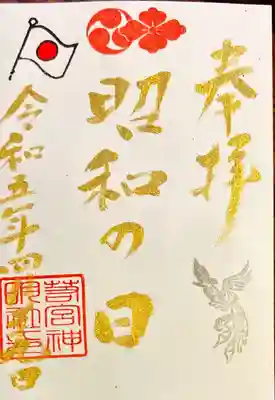 奉拝
昭和の日
令和五年四 日
若宮神
明社